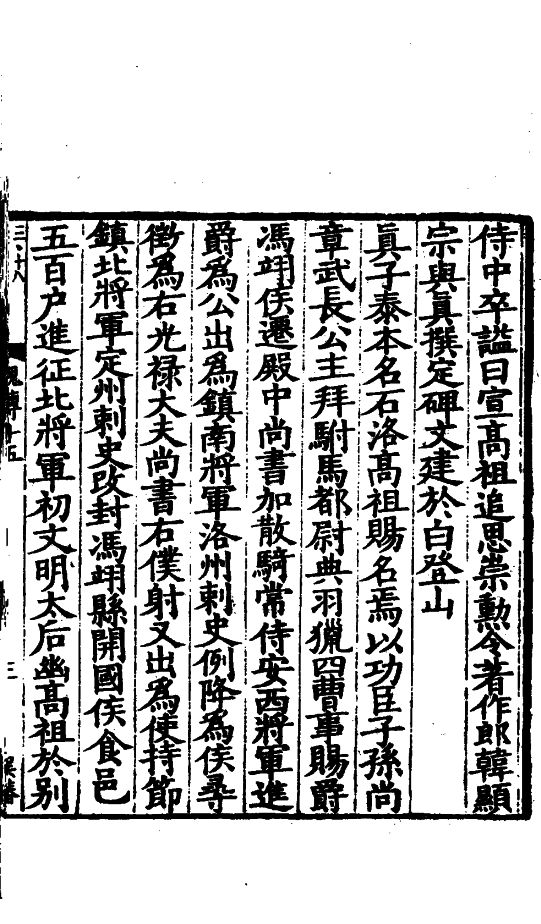 侍中卒謚曰宣高祖追思崇勲令著作郎韓顯
宗與眞撰定碑文建於白登山
眞子泰本名石洛高祖賜名焉以功臣子孫尚
章武長公主拜駙馬都尉典羽獵四曹事賜爵
馮翊侯遷殿中尚書加散騎常侍安西將軍進
爵爲公出爲鎮南將軍洛州刺史例降爲侯尋
徵爲右光禄大夫尚書右僕射又出爲使持節
鎮北將軍定州刺史改封馮翊縣開國侯食邑
五百户進征北將軍初文明太后幽高祖於别
三